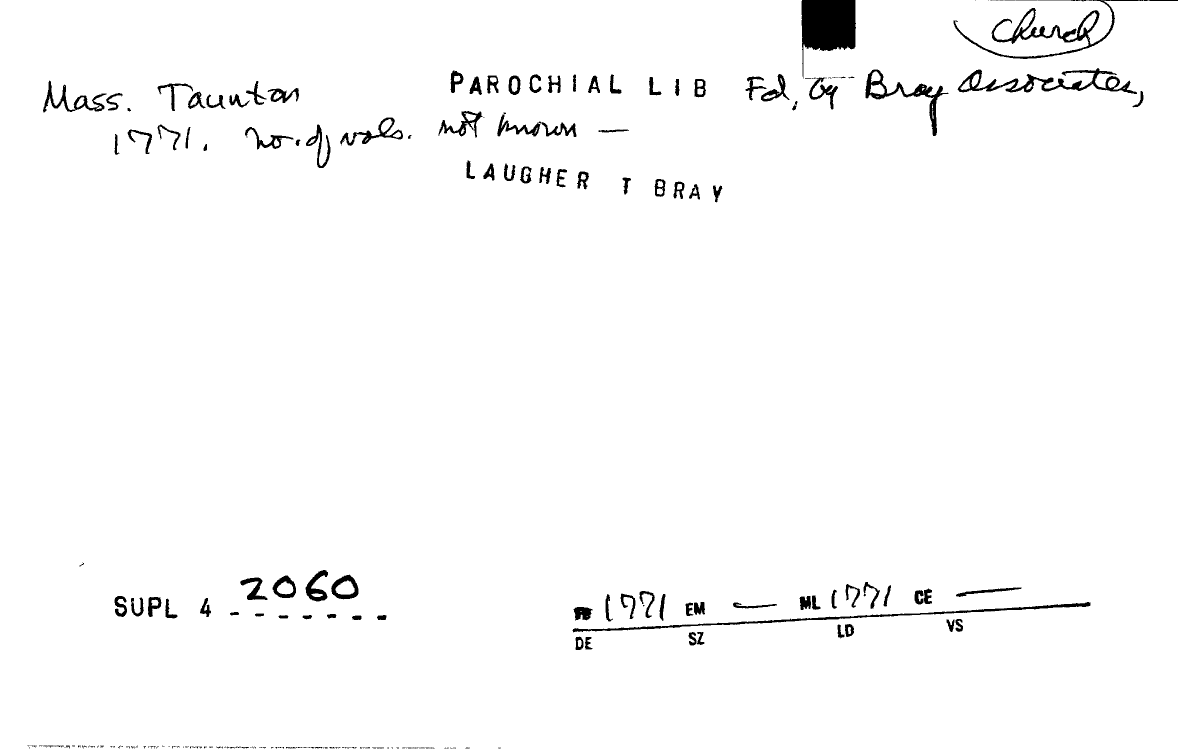 Church
Mass. Taunton PAROCHIAL LIB Fd, by Bray Associates,
1771. no. of vols. not known —
LAUGHER T BRAY
SUPL 4 2060
1771 EM — ML 1771 CE —
DE SZ LD VS